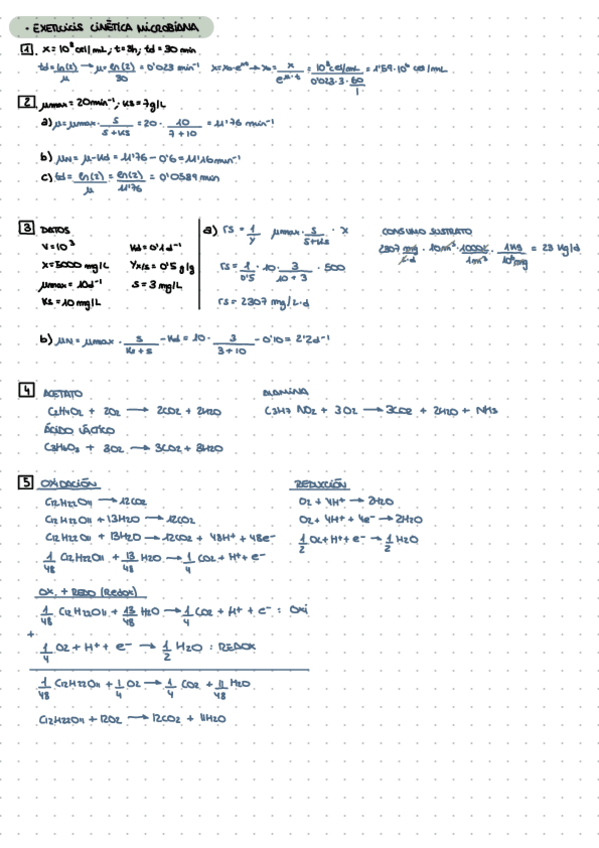 · EXERCICIS CINÈTICA MICROBIANA
1. x = 10⁸ cel/mL ; t = 3h ; td = 30 min
td = ln(2)/μ → μ = ln(2)/30 = 0'023 min⁻¹ x = x₀·e^μt → x₀ = x/e^μ·t = 10⁸ cel/mL / 0'023·3·60/1 = 1'59·10⁶ cel/mL
2. μmax = 20 min⁻¹ ; Ks = 7g/L
a) μ = μmax · S/S+Ks = 20 · 10/7+10 = 11'76 min⁻¹
b) μN = μ - Kd = 11'76 - 0'6 = 11'16 min⁻¹
c) td = ln(2)/μ = ln(2)/11'76 = 0'0589 min
3 DATOS
V = 10³ Kd = 0'1 d⁻¹
X = 5000 mg/L Yx/s = 0'5 g/g
μmax = 10d⁻¹ S = 3 mg/L
Ks = 10 mg/L
a) rs = 1/Y μmax · S/S+Ks · X
rs = 1/0'5 · 10 · 3/10+3 · 500
rs = 2307 mg/L·d
CONSUMO SUSTRATO
2307 mg/L·d · 10m³ · 1000L/1m³ · 1Kg/10⁶mg = 23 Kg/d
b) μN = μmax · S/Ks+S - Kd = 10 · 3/3+10 - 0'10 = 2'2d⁻¹
4 ACETATO
C2H4O2 + 2O2 → 2CO2 + 2H2O
ÁCIDO LÁCTICO
C3H6O3 + 3O2 → 3CO2 + 3H2O
ALANINA
C3H7NO2 + 3O2 → 3CO2 + 2H2O + NH3
5 OXIDACIÓN
C12H22O11 → 12CO2
C12H22O11 + 13H2O → 12CO2
C12H22O11 + 13H2O → 12CO2 + 48H⁺ + 48e⁻
1/48 C12H22O11 + 13/48 H2O → 1/4 CO2 + H⁺ + e⁻
REDUCCIÓN
O2 + 4H⁺ → 2H2O
O2 + 4H⁺ + 4e⁻ → 2H2O
1/2 O2 + H⁺ + e⁻ → 1/2 H2O
OX. + REDO (Redox)
1/48 C12H22O11 + 13/48 H2O → 1/4 CO2 + H⁺ + e⁻ : OXi
+
1/4 O2 + H⁺ + e⁻ → 1/2 H2O : REDOX
1/48 C12H22O11 + 1/4 O2 → 1/4 CO2 + 11/48 H2O
C12H22O11 + 12O2 → 12CO2 + 11H2O